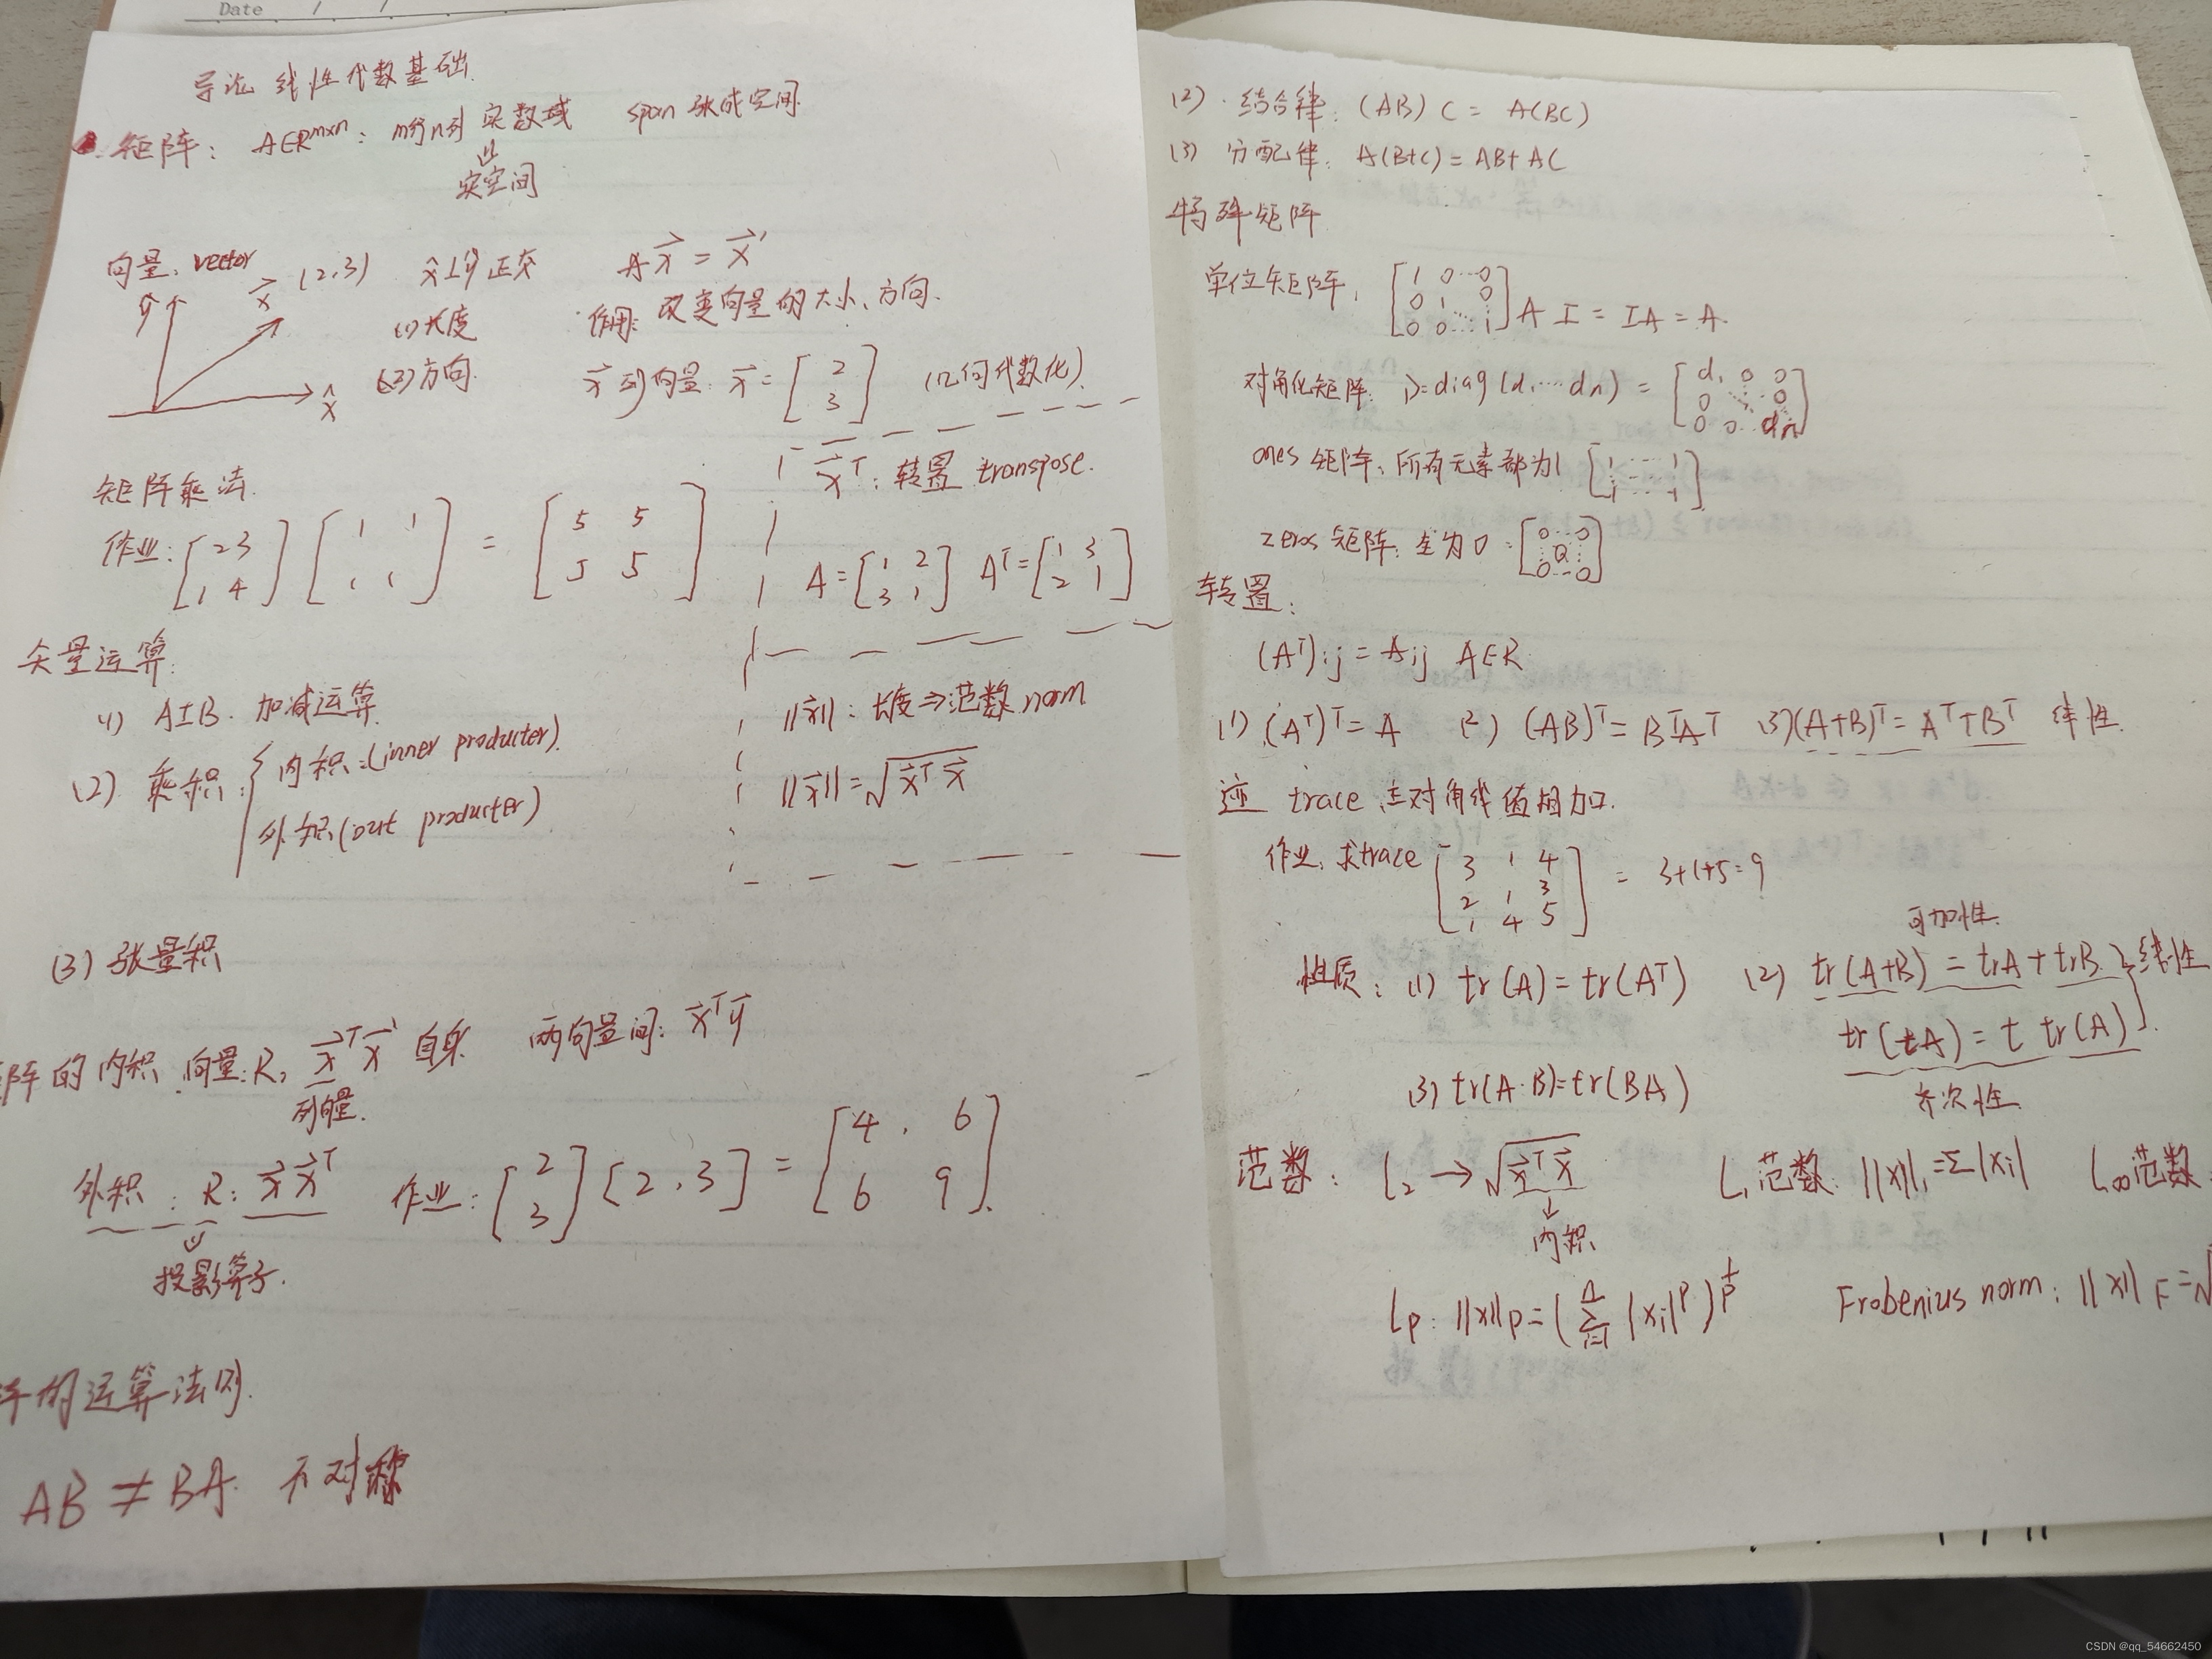 Date / /
导论 线性代数基础.
矩阵: A∈R^{m×n}: m行n列 实数域 span 张成空间
⇓
实空间
向量: vector
x⃗ (2,3) x̂⊥ŷ 正交 Ax⃗ = x⃗'
ŷ
(1)长度 作用: 改变向量的大小、方向.
(2)方向. x⃗ 列向量 x⃗ = [2; 3] (几何代数化).
x̂
x⃗^T: 转置 transpose.
矩阵乘法.
作业: [2 3; 1 4] [1 1; 1 1] = [5 5; 5 5]
A = [1 2; 3 1] A^T = [1 3; 2 1]
矢量运算:
(1) A±B. 加减运算
||x⃗||: 长度⇒范数 norm
(2) 乘积: { 内积:(inner producter).
外积(out producter)
||x⃗|| = √(x⃗^T x⃗)
(3) 张量积
阵的内积 向量:R, x⃗^T x⃗ 自身 两向量间: x⃗^T y⃗
列向量.
外积: R: x⃗x⃗^T 作业: [2; 3] [2,3] = [4, 6; 6 9].
⇓
投影算子.
的运算法则.
AB ≠ BA. 不对称
(2) 结合律: (AB)C = A(BC)
(3) 分配律: A(B+C) = AB+AC
特殊矩阵
单位矩阵: [1 0 ⋯ 0; 0 1 ⋱ 0; 0 0 ⋯ 1] AI = IA = A.
对角化矩阵: D=diag(d₁⋯dn) = [d₁ 0 0; 0 ⋱ 0; 0 0 ⋯ dn]
ones 矩阵: 所有元素都为1 [1 ⋯ 1; 1 ⋯ 1]
zeros 矩阵: 全为0: [0 ⋯ 0; ⋮ 0 ⋮; 0 ⋯ 0]
转置:
(A^T)ij = Aij A∈R
(1) (A^T)^T = A (2) (AB)^T = B^T A^T (3)(A+B)^T = A^T+B^T 线性.
迹 trace 主对角线值相加.
作业: 求trace [3 1 4; 2 1 3; 1 4 5] = 3+1+5=9
可加性.
性质: (1) tr(A) = tr(A^T) (2) tr(A+B) = trA + trB. } 线性
tr(tA) = t tr(A)
(3) tr(A·B)=tr(BA) 齐次性.
范数: L₂ → √(x⃗^T x⃗) L₁范数: ||x||₁=Σ|xi| L∞范数
↓
内积
Lp: ||x||p = (Σ_{i=1}^{n} |xi|^p)^{1/p} Frobenius norm: ||x||_F = √
CSDN @qq_54662450